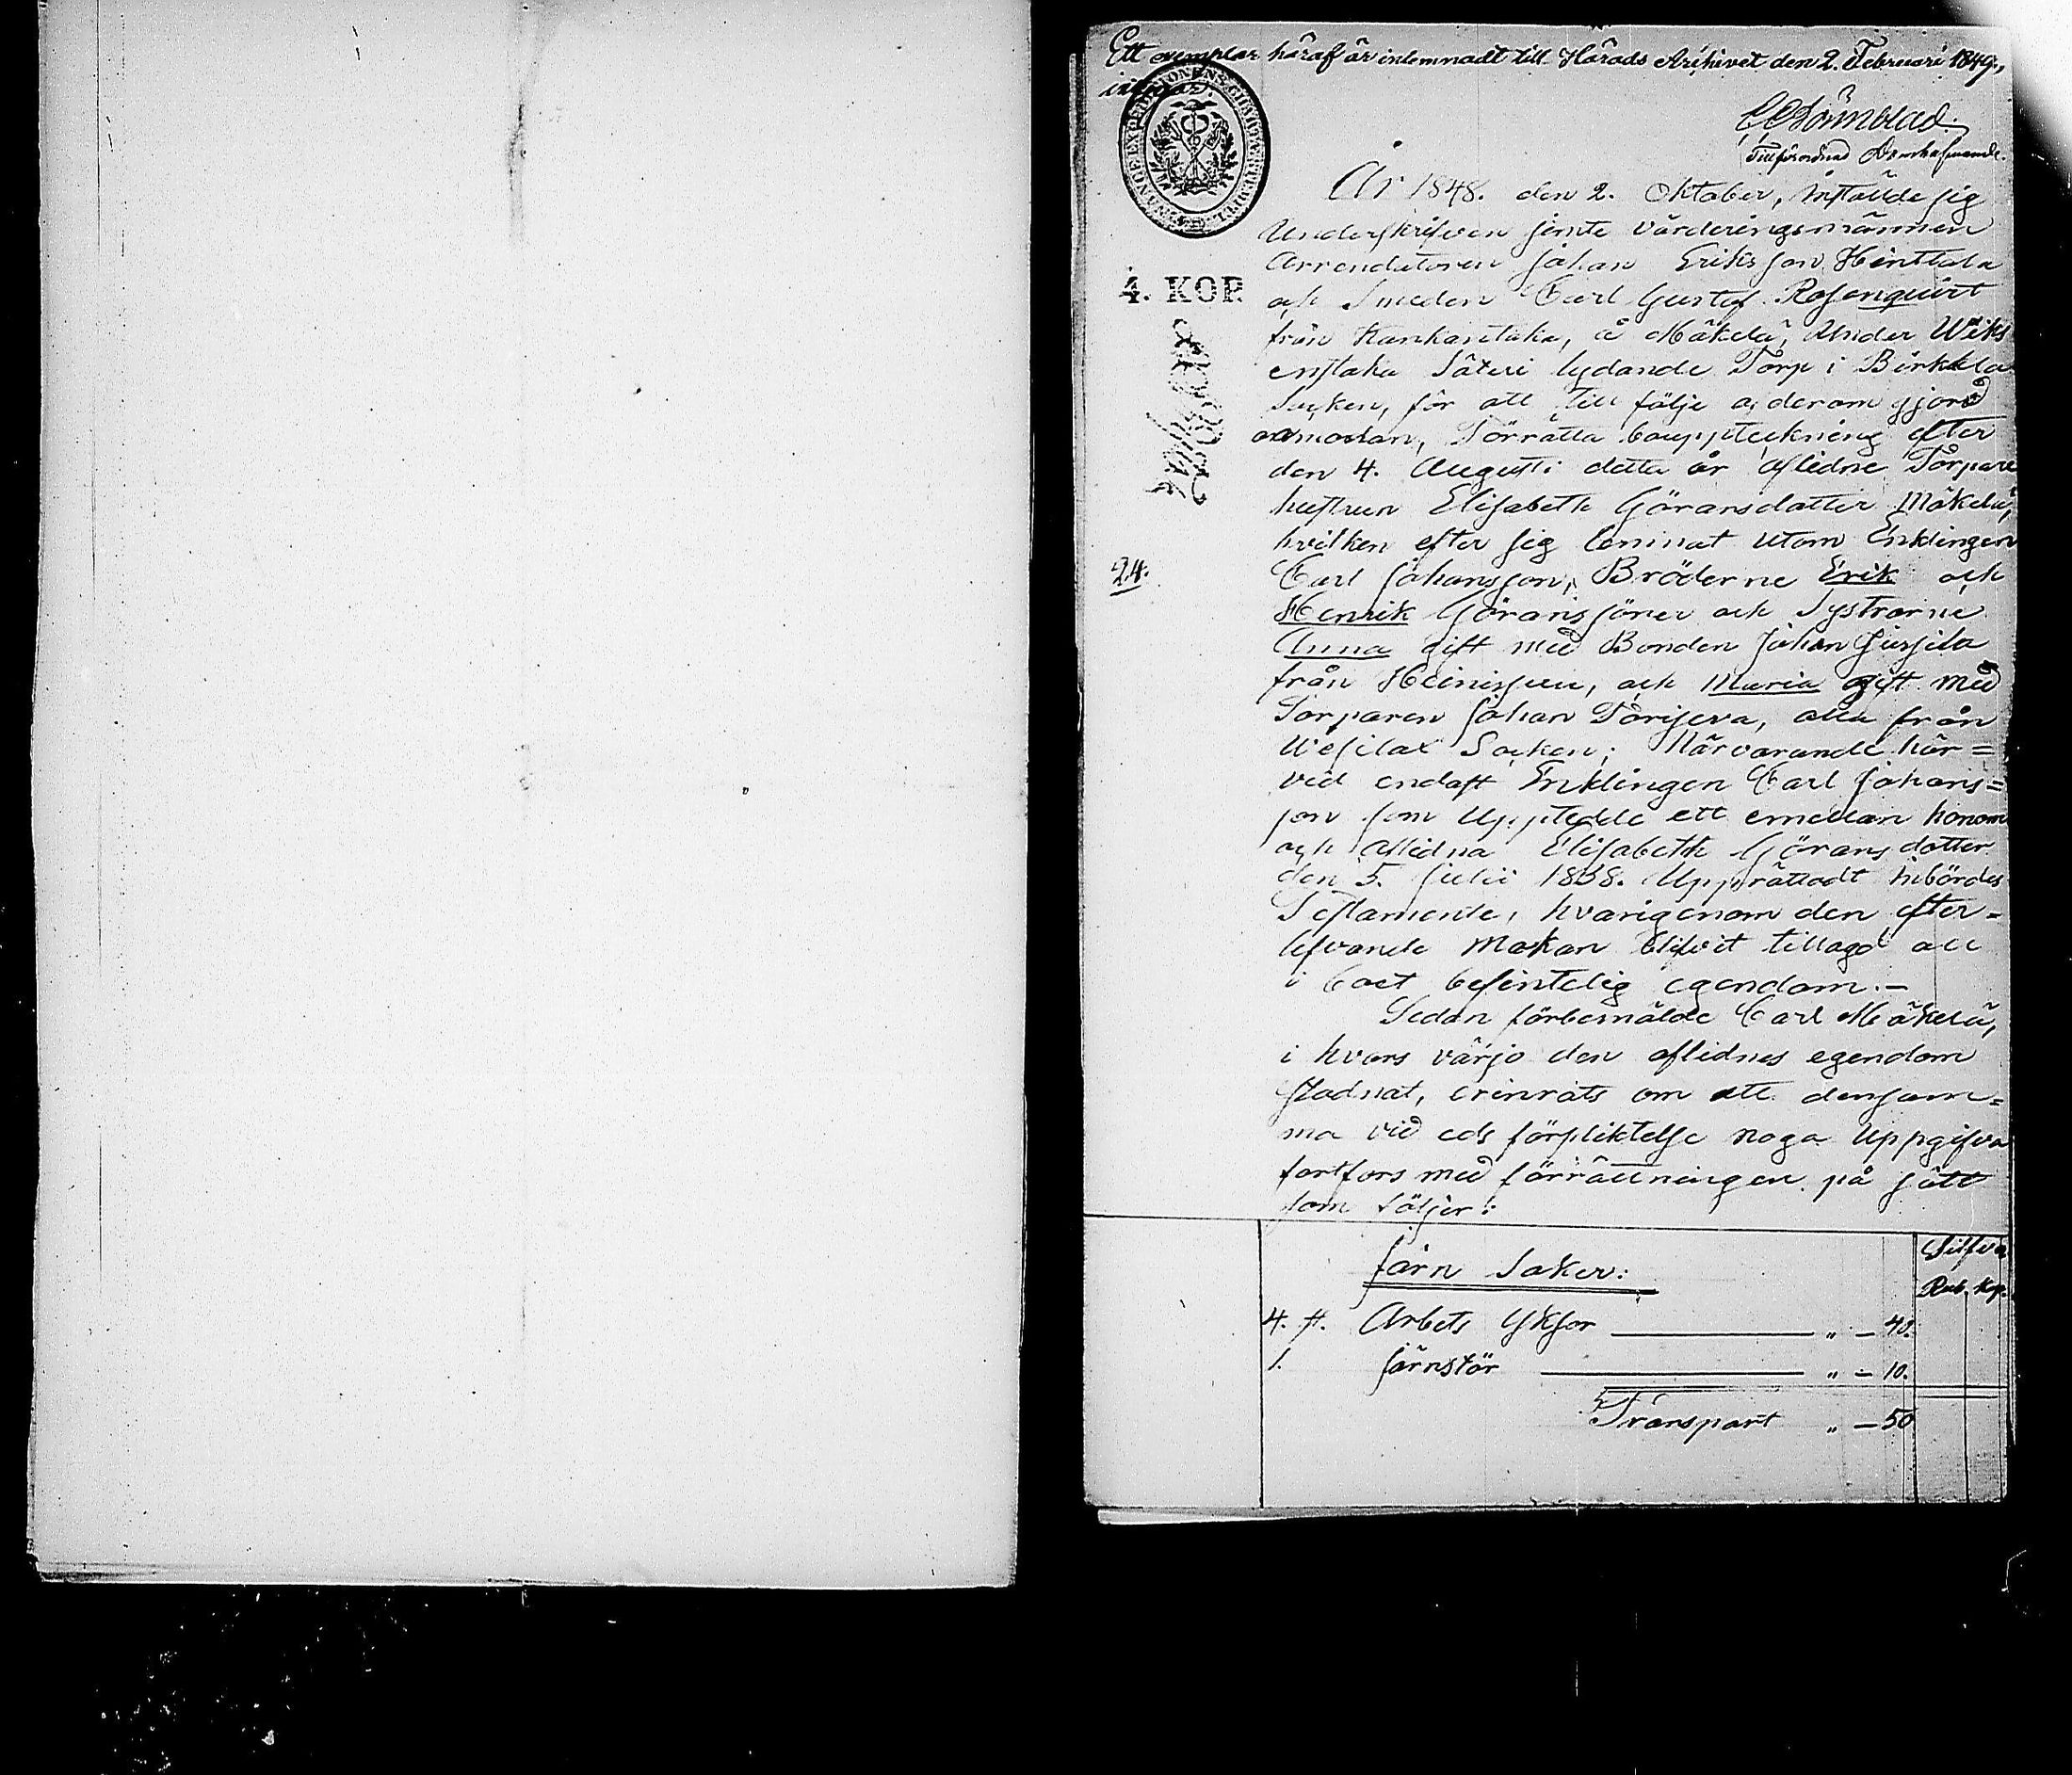 Ett exemplar häraf är inlemnadt till Härads Arkivet den 2. Februari 1849.,
intygar.
Tillförordnad Domhafvande.
År 1848. den 2. Oktober, instälde sig
Underskrifven jemte värderingsmännen
Arrendatoren Johan Eriksson Hinttala
och Smeden Carl Gustaf Rosenqvist
4. KOP.
från Kankantaka, å Mäkelä, Under Wiks
enstaka Säteri lydande Torp i Birkkala
Socken, för att till följe af derom gjord
anmodan, Förrätta bouppteckning efter
den 4. Augusti detta år aflidne Torpare
hustrun Elisabeth Göransdotter Mäkelä,
hvilken efter sig lemnat utom Enklingen
24.
Carl Johansson, Bröderne Erik och
Henrik Göranssöner och Systrarne
Anna gift med Bonden Johan
från och Maria gift med
Torparen Johan alla från
Wesilax Socken; Närvarande här=
vid endast Enklingen Carl Johans=
son som Uppteddе ett emellan honom
och aflidna Elisabeth Görans dotter
den 5. Julii 1838. Upprättadt inbördes
Testamente, hvarigenom den efter=
lefvande Makan blifvit tillagd all
i boet befintelig egendom.—
Sedan förbemälde Carl Mäkelä,
i hvars värjo den aflidnes egendom
stadnat, erinrats om att densam=
ma vid eds förpliktelse noga Uppgifva
fortfors med förrättningen på sätt
som följer:
Silfver
Järn Saker:
Rub. Kop.
4. st. Arbets Yksor " — 40.
1. Järnstör " — 10.
Transport " — 50